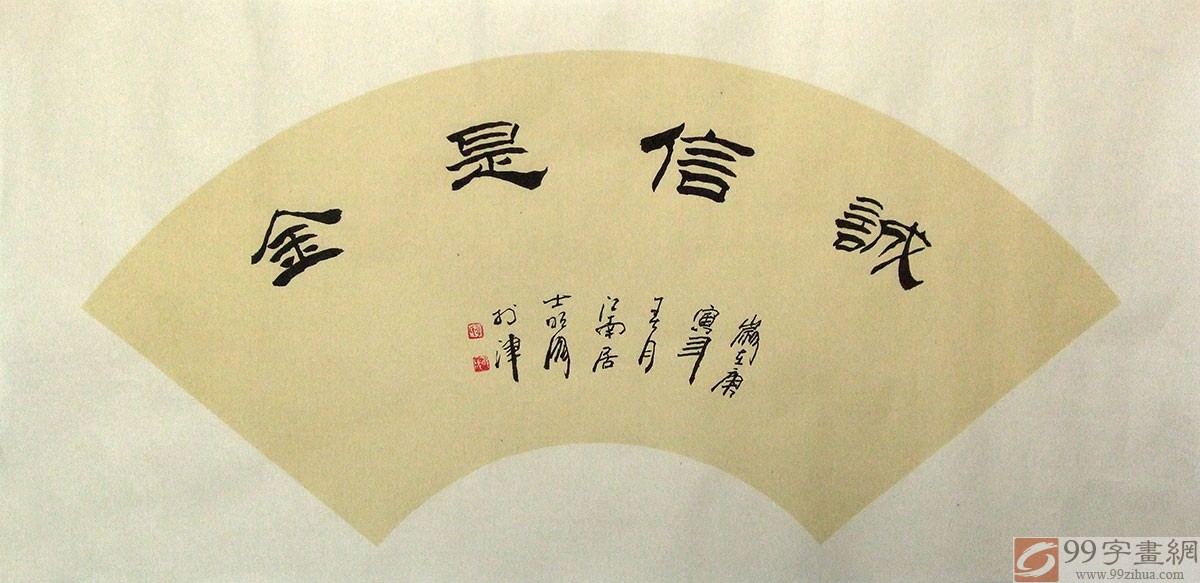 誠信是金
歲在庚
寅年
五月
江南居
士明國
於津
99字畫網
www.99zihua.com